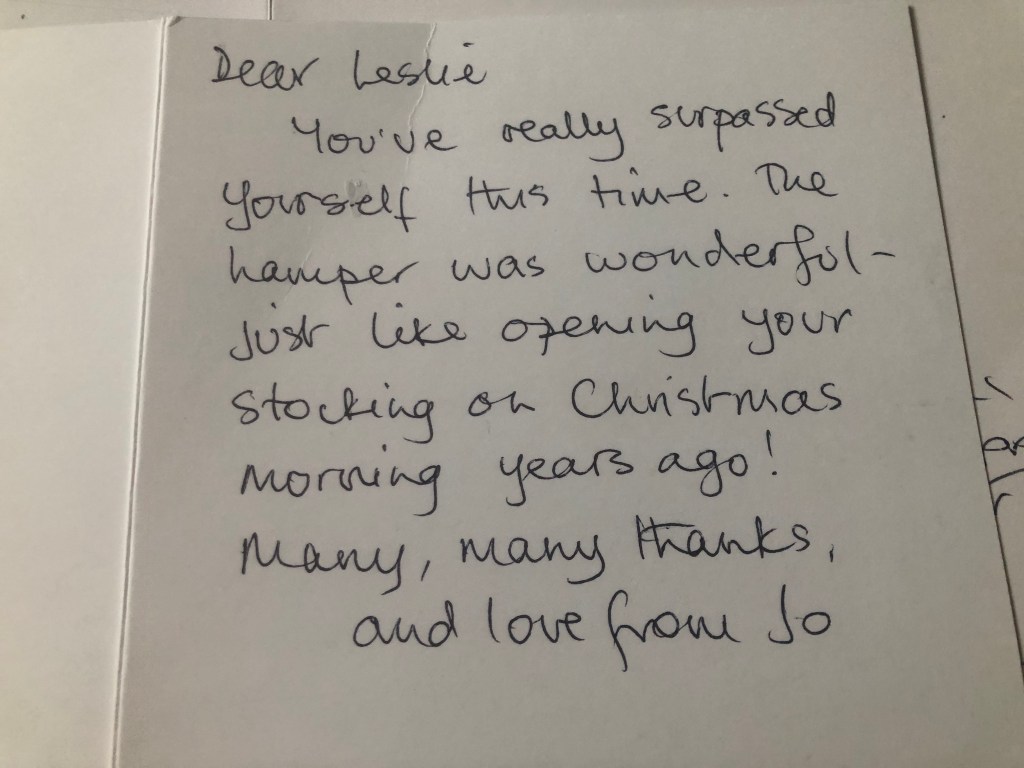 Dear Leslie
You've really surpassed
yourself this time. The
hamper was wonderful -
just like opening your
stocking on Christmas
morning years ago!
Many, many thanks,
and love from Jo